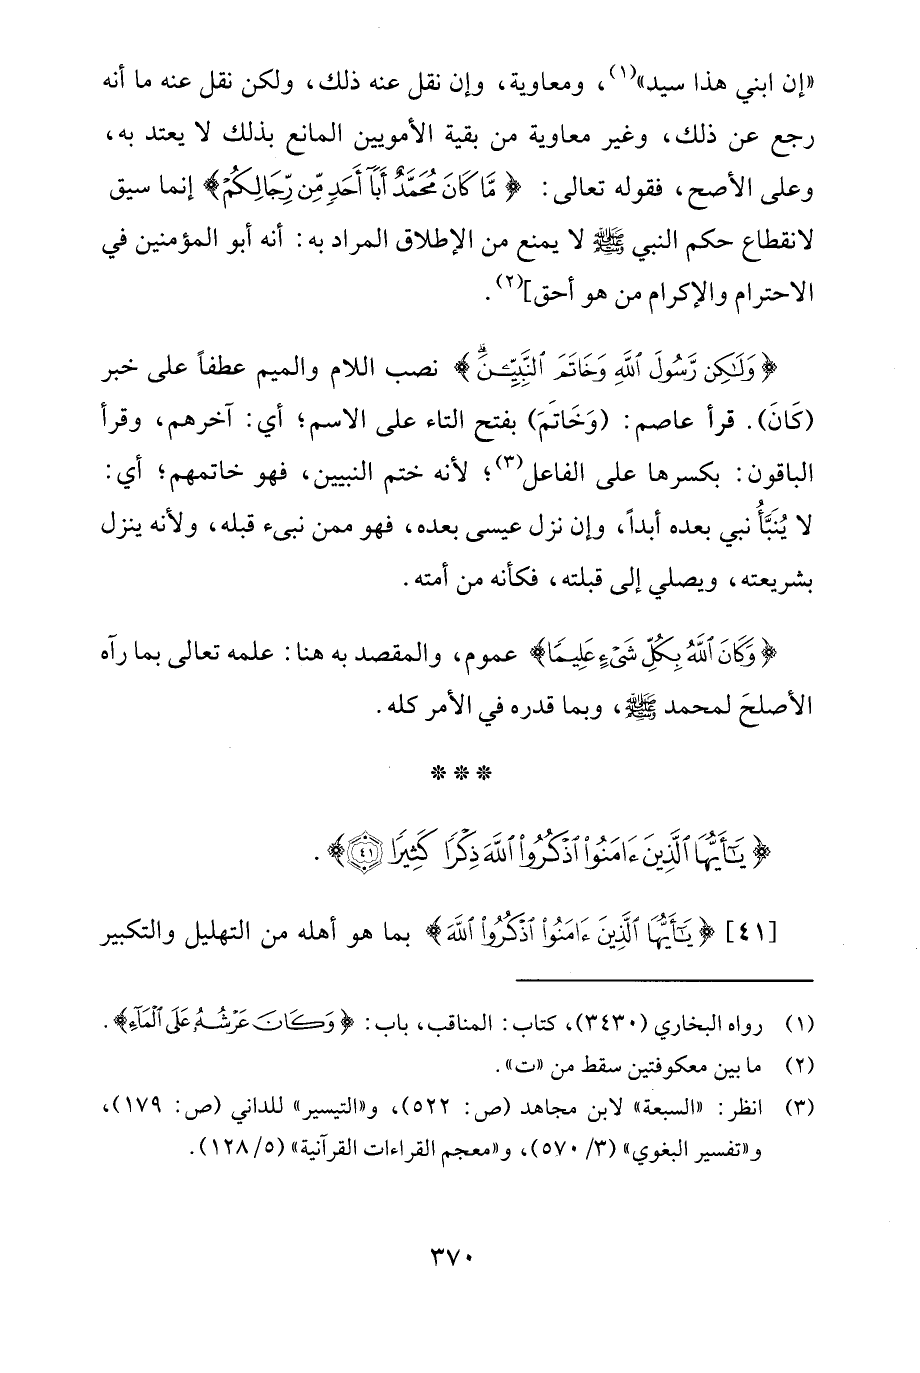 «إن ابني هذا سيد»(١)، ومعاوية، وإن نقل عنه ذلك، ولكن نقل عنه ما أنه
رجع عن ذلك، وغير معاوية من بقية الأمويين المانع بذلك لا يعتد به،
وعلى الأصح، فقوله تعالى: ﴿مَّا كَانَ مُحَمَّدٌ أَبَآ أَحَدٍ مِّن رِّجَالِكُمْ﴾ إنما سيق
لانقطاع حكم النبي ﷺ لا يمنع من الإطلاق المراد به: أنه أبو المؤمنين في
الاحترام والإكرام من هو أحق](٢).
﴿وَلَٰكِن رَّسُولَ ٱللَّهِ وَخَاتَمَ ٱلنَّبِيِّـۧنَۗ﴾ نصب اللام والميم عطفاً على خبر
(كَانَ). قرأ عاصم: (وَخَاتَمَ) بفتح التاء على الاسم؛ أي: آخرهم، وقرأ
الباقون: بكسرها على الفاعل(٣)؛ لأنه ختم النبيين، فهو خاتمهم؛ أي:
لا يُنَبَّأُ نبي بعده أبداً، وإن نزل عيسى بعده، فهو ممن نبىء قبله، ولأنه ينزل
بشريعته، ويصلي إلى قبلته، فكأنه من أمته.
﴿وَكَانَ ٱللَّهُ بِكُلِّ شَىْءٍ عَلِيمًا﴾ عموم، والمقصد به هنا: علمه تعالى بما رآه
الأصلحَ لمحمد ﷺ، وبما قدره في الأمر كله.
* * *
﴿يَٰٓأَيُّهَا ٱلَّذِينَ ءَامَنُوا۟ ٱذْكُرُوا۟ ٱللَّهَ ذِكْرًا كَثِيرًا ٤١﴾.
[٤١] ﴿يَٰٓأَيُّهَا ٱلَّذِينَ ءَامَنُوا۟ ٱذْكُرُوا۟ ٱللَّهَ﴾ بما هو أهله من التهليل والتكبير
(١) رواه البخاري (٣٤٣٠)، كتاب: المناقب، باب: ﴿وَكَانَ عَرْشُهُۥ عَلَى ٱلْمَآءِ﴾.
(٢) ما بين معكوفتين سقط من «ت».
(٣) انظر: «السبعة» لابن مجاهد (ص: ٥٢٢)، و«التيسير» للداني (ص: ١٧٩)،
و«تفسير البغوي» (٣/ ٥٧٠)، و«معجم القراءات القرآنية» (٥/ ١٢٨).
٣٧٠